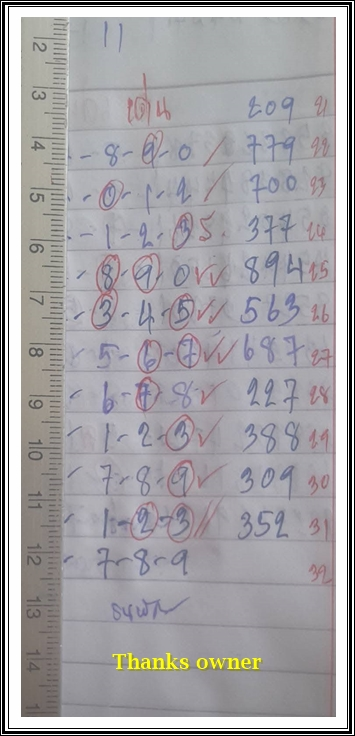 11
เด่น 209 21
- 8-9-0 / 779 22
- 0-1-2 / 700 23
- 1-2-3 5. 377 24
- 8-9-0 ✓✓ 894 25
- 3-4-5 ✓✓ 563 26
- 5-6-7 ✓✓ 687 27
- 6-7-8 ✓ 227 28
- 1-2-3 ✓ 388 29
- 7-8-9 ✓ 309 30
- 1-2-3 // 352 31
- 7-8-9 32
Thanks owner
2
3
4
5
6
7
8
9
10
11
12
13
14